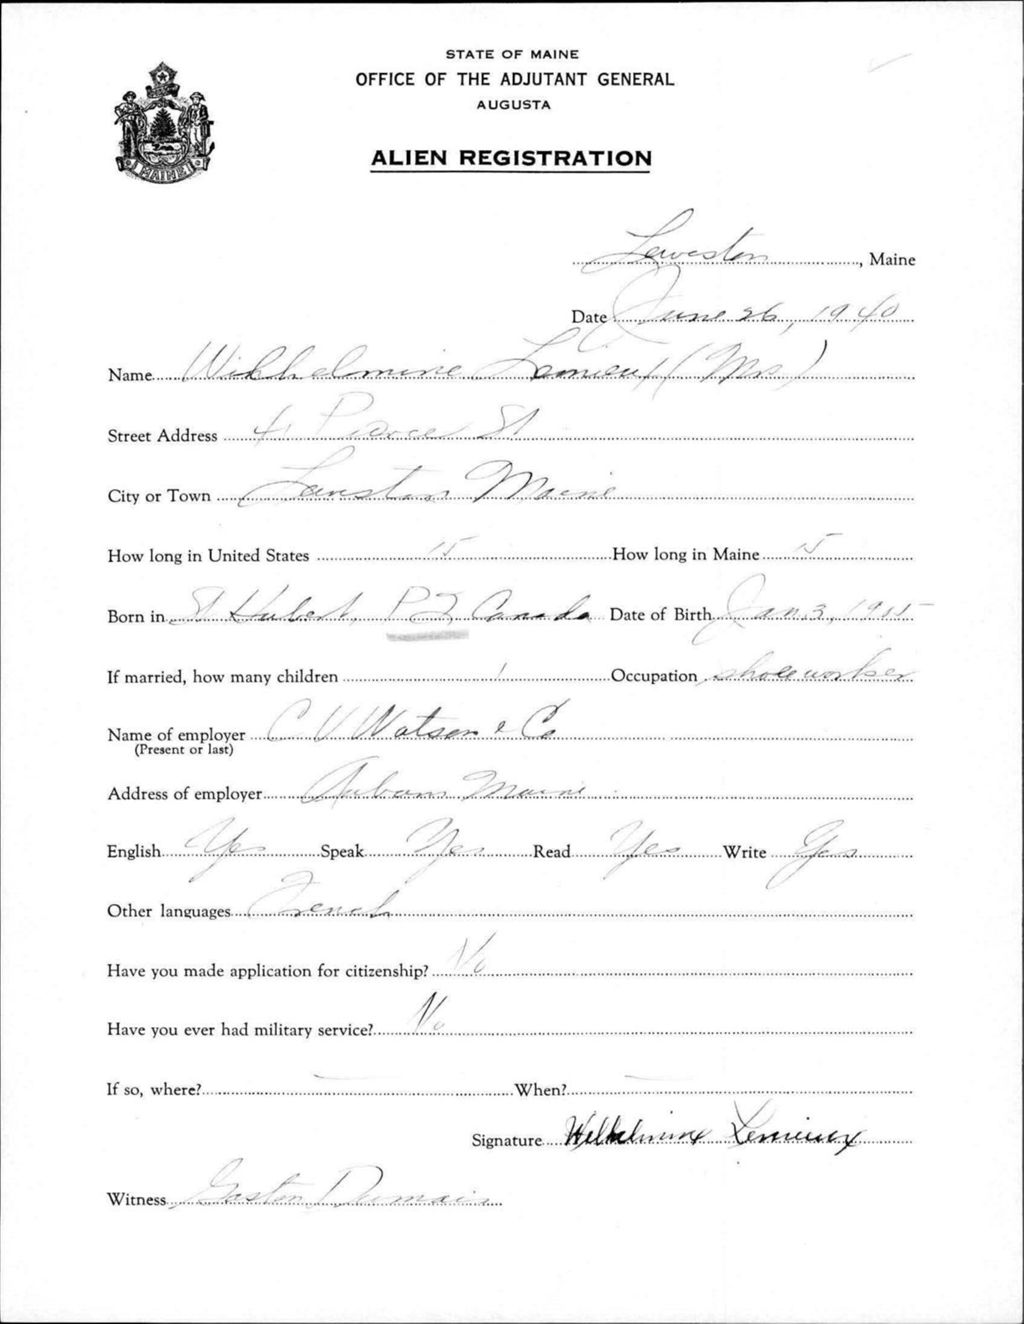 STATE OF MAINE
OFFICE OF THE ADJUTANT GENERAL
AUGUSTA
MAINE
ALIEN REGISTRATION
Lewiston, Maine
Date June 26, 1940
Name Wilhelmine Lemieux (Mrs)
Street Address 41 Pierce St
City or Town Lewiston Maine
How long in United States 15 How long in Maine 15
Born in St Hubert, P Q Canada Date of Birth Jan 3, 1915
If married, how many children 1 Occupation shoeworker
Name of employer C V Watson & Co
(Present or last)
Address of employer Auburn Maine
English Yes Speak Yes Read Yes Write Yes
Other languages French
Have you made application for citizenship? No
Have you ever had military service? No
If so, where? — When? —
Signature Wilhelmine Lemieux
Witness Gaston Dumais